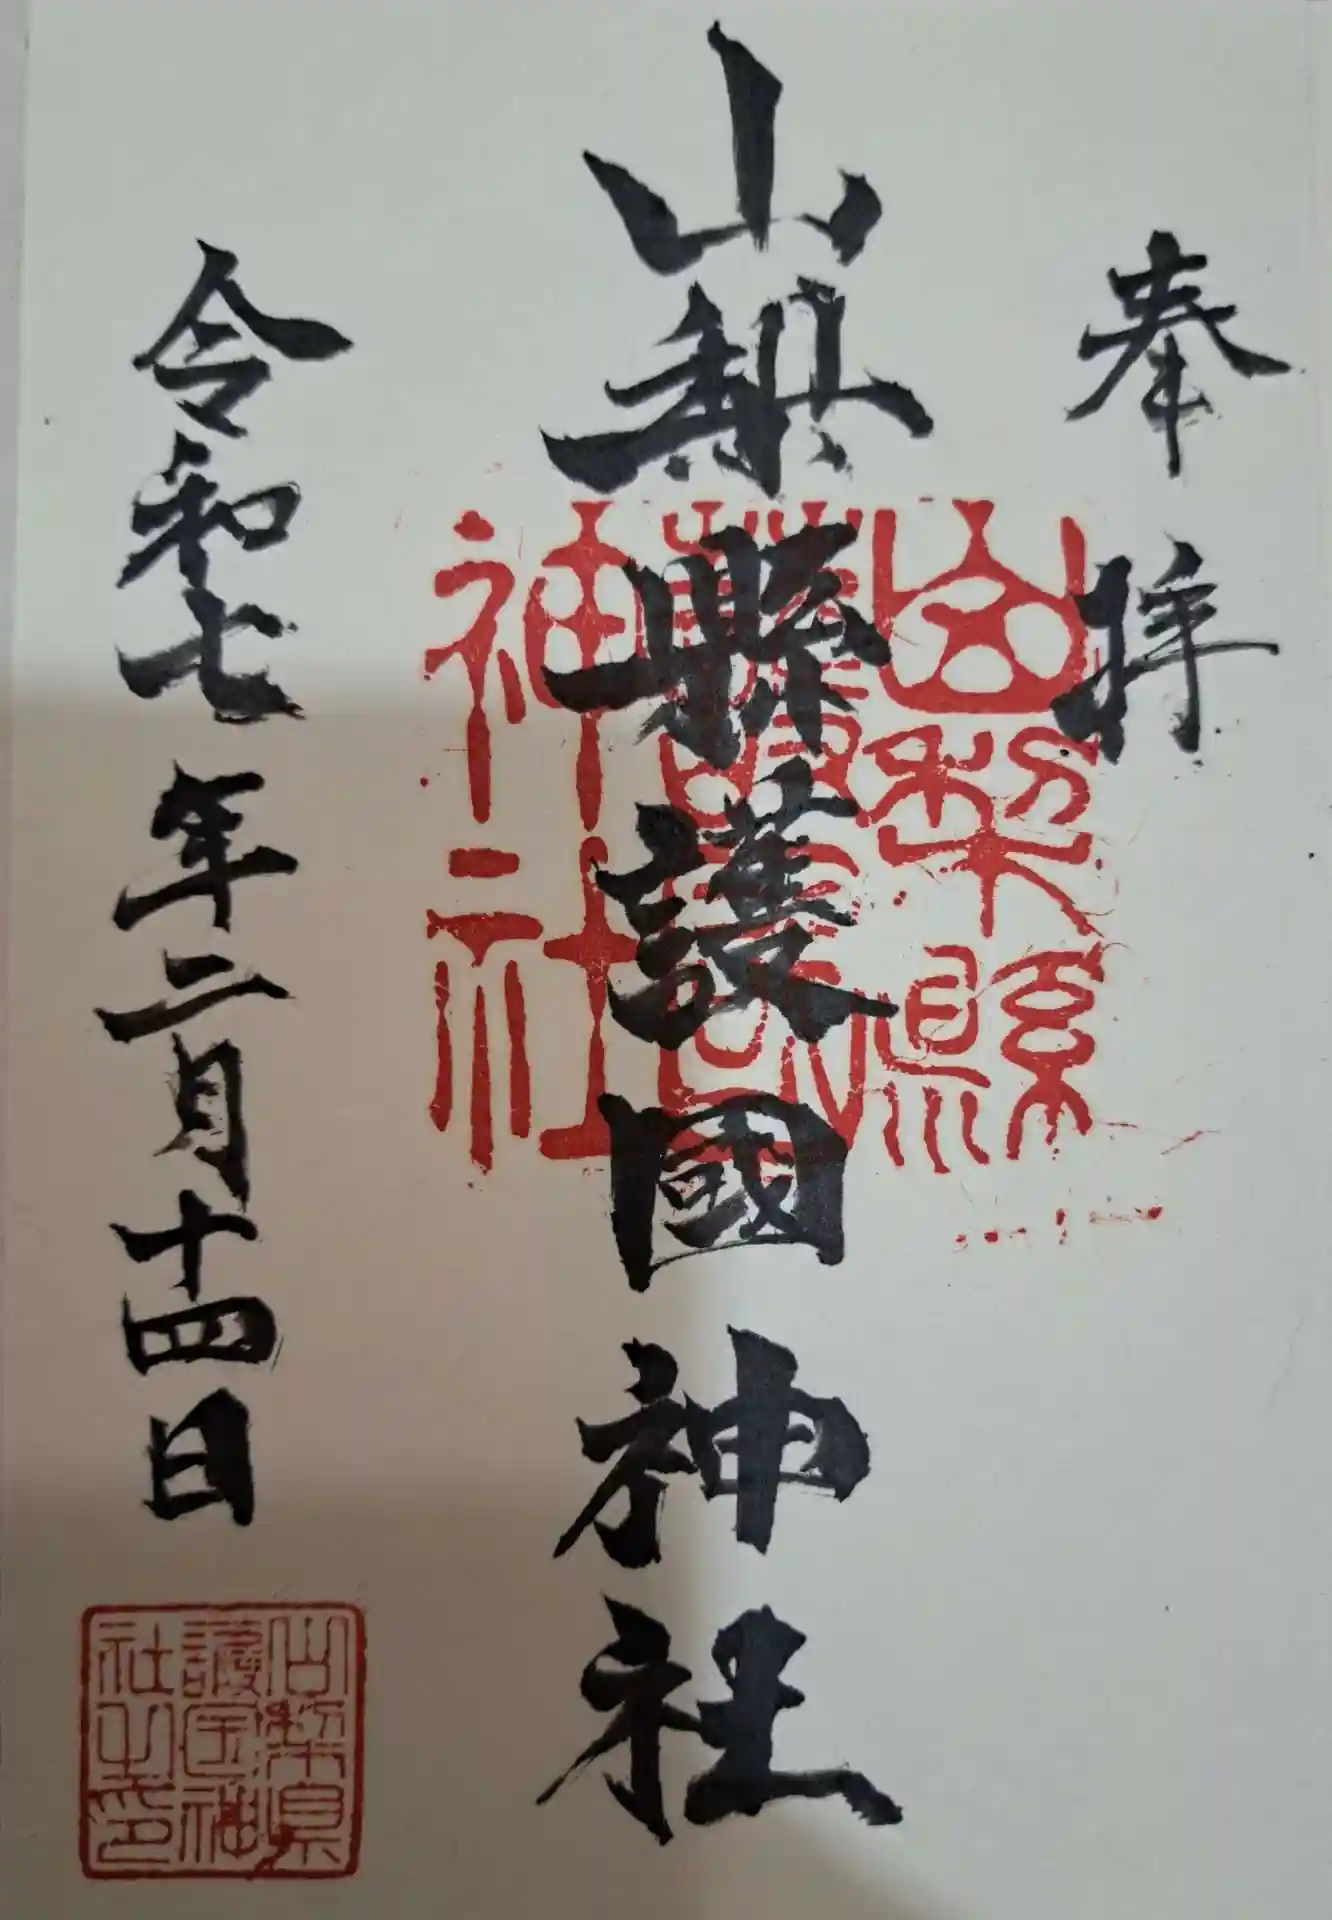 奉拝
山梨縣護國神社
山梨縣
護國
神社
令和七年二月十四日
山梨県
護国神
社之印